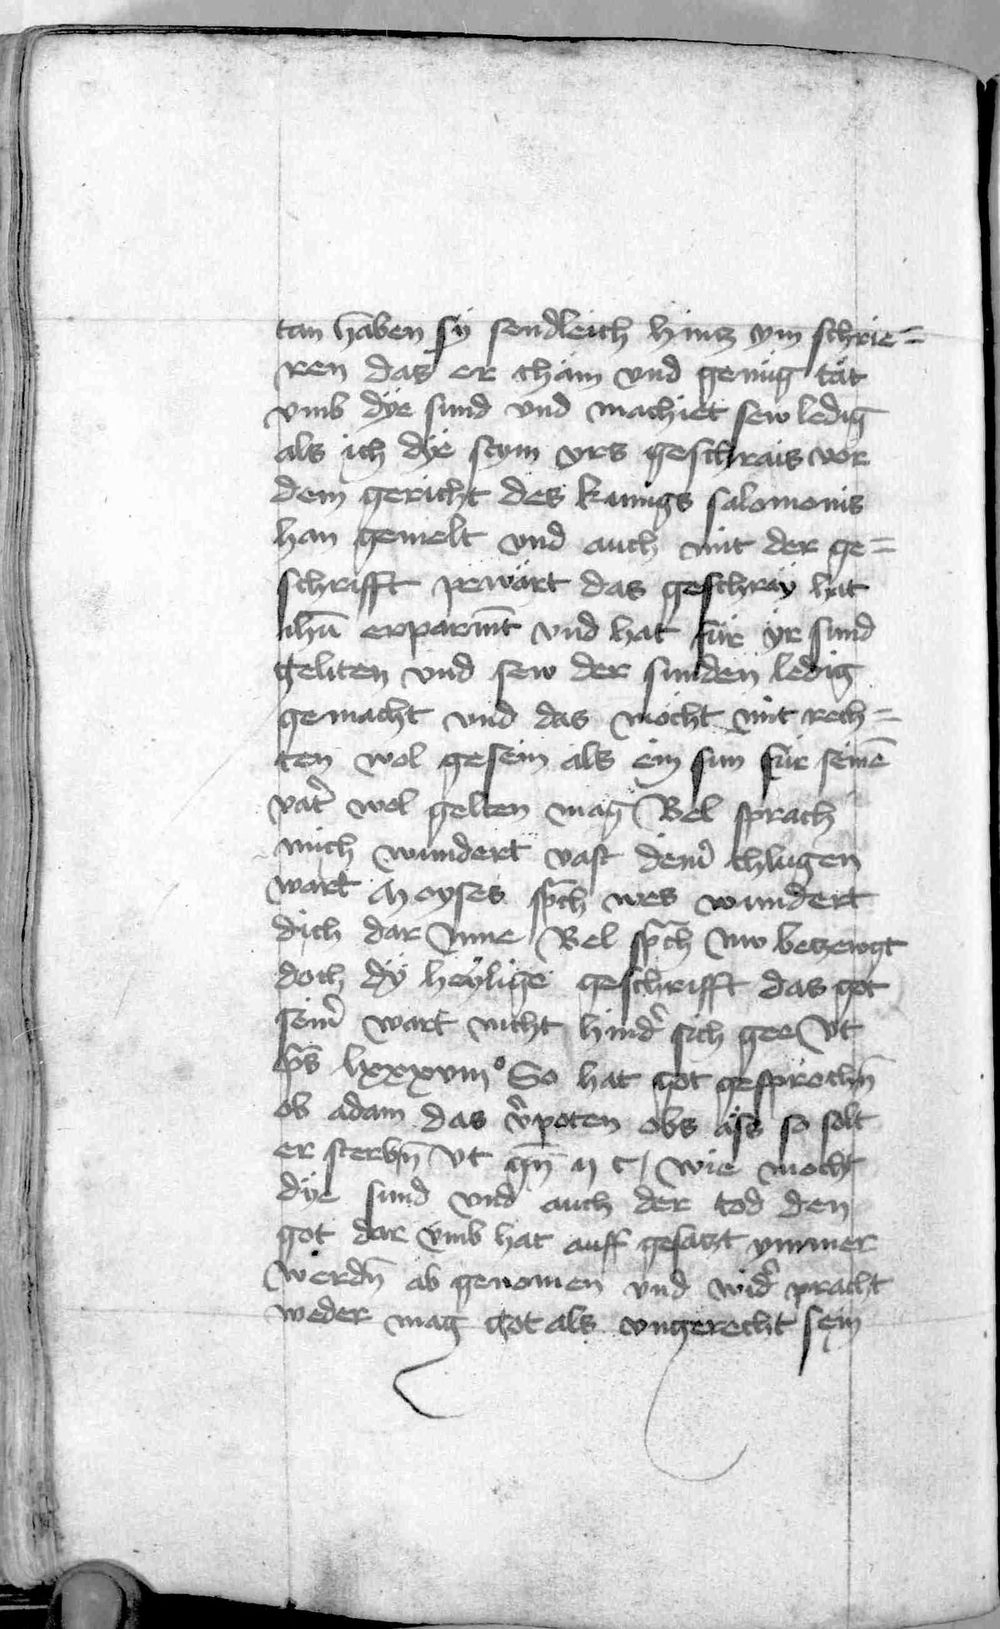 tan haben sy sendleich hintz ym schrie=
ren das er cham vnd genug tät
vmb dye sund vnd machiet sew ledig
als ich dye stym yrs geschrais vor
dem gericht des kunigs salomonis
han gemelt vnd auch mit der ge=
schrifft pewärt das geschray hat
ihū erparmt vnd hat für yr sund
geliten vnd sew der sunden ledig
gemacht vnd das mocht mit rech=
ten wol gesein als ein sun für seinē
vat̉ wol gelten mag Bel sprach
mich wundert vast dein̉ chlugen
wart Moyses sp̄ch wes wundert
dich dar ynne Bel sp̄ch Nw betzewgt
doch dy heylige geschrifft das got
sein̉ wart nicht hind̉ sich gee Vt
ps̄ lxxxviiiº So hat got gesprochn̄
ob adam das v̉poten obs äss so solt
er sterbn̄ Vt gn̄ ij c / Wie mocht
dye sund vnd auch der tod den
got dar vmb hat auff gesatzt ymmer
werdn̄ ab genomen vnd wid̉ pracht
weder mag got als vngerecht sein